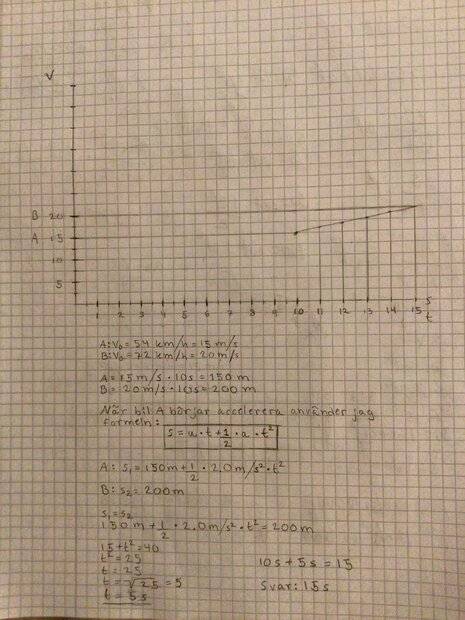 V
B 20
A 15
10
5
1 2 3 4 5 6 7 8 9 10 11 12 13 14 15 s
t
A: V₀ = 54 km/h = 15 m/s
B: V₀ = 72 km/h = 20 m/s
A = 15 m/s · 10s = 150 m
B = 20 m/s · 10s = 200 m
När bil A börjar accelerera använder jag
formeln:
s = u · t + 1/2 · a · t²
A: s₁ = 150m + 1/2 · 2.0 m/s² · t²
B: s₂ = 200m
s₁ = s₂
150 m + 1/2 · 2.0 m/s² · t² = 200m
15 + t² = 40
t² = 25
t = 25
t = √25 = 5
t = 5s
10s + 5s = 15
Svar: 15s